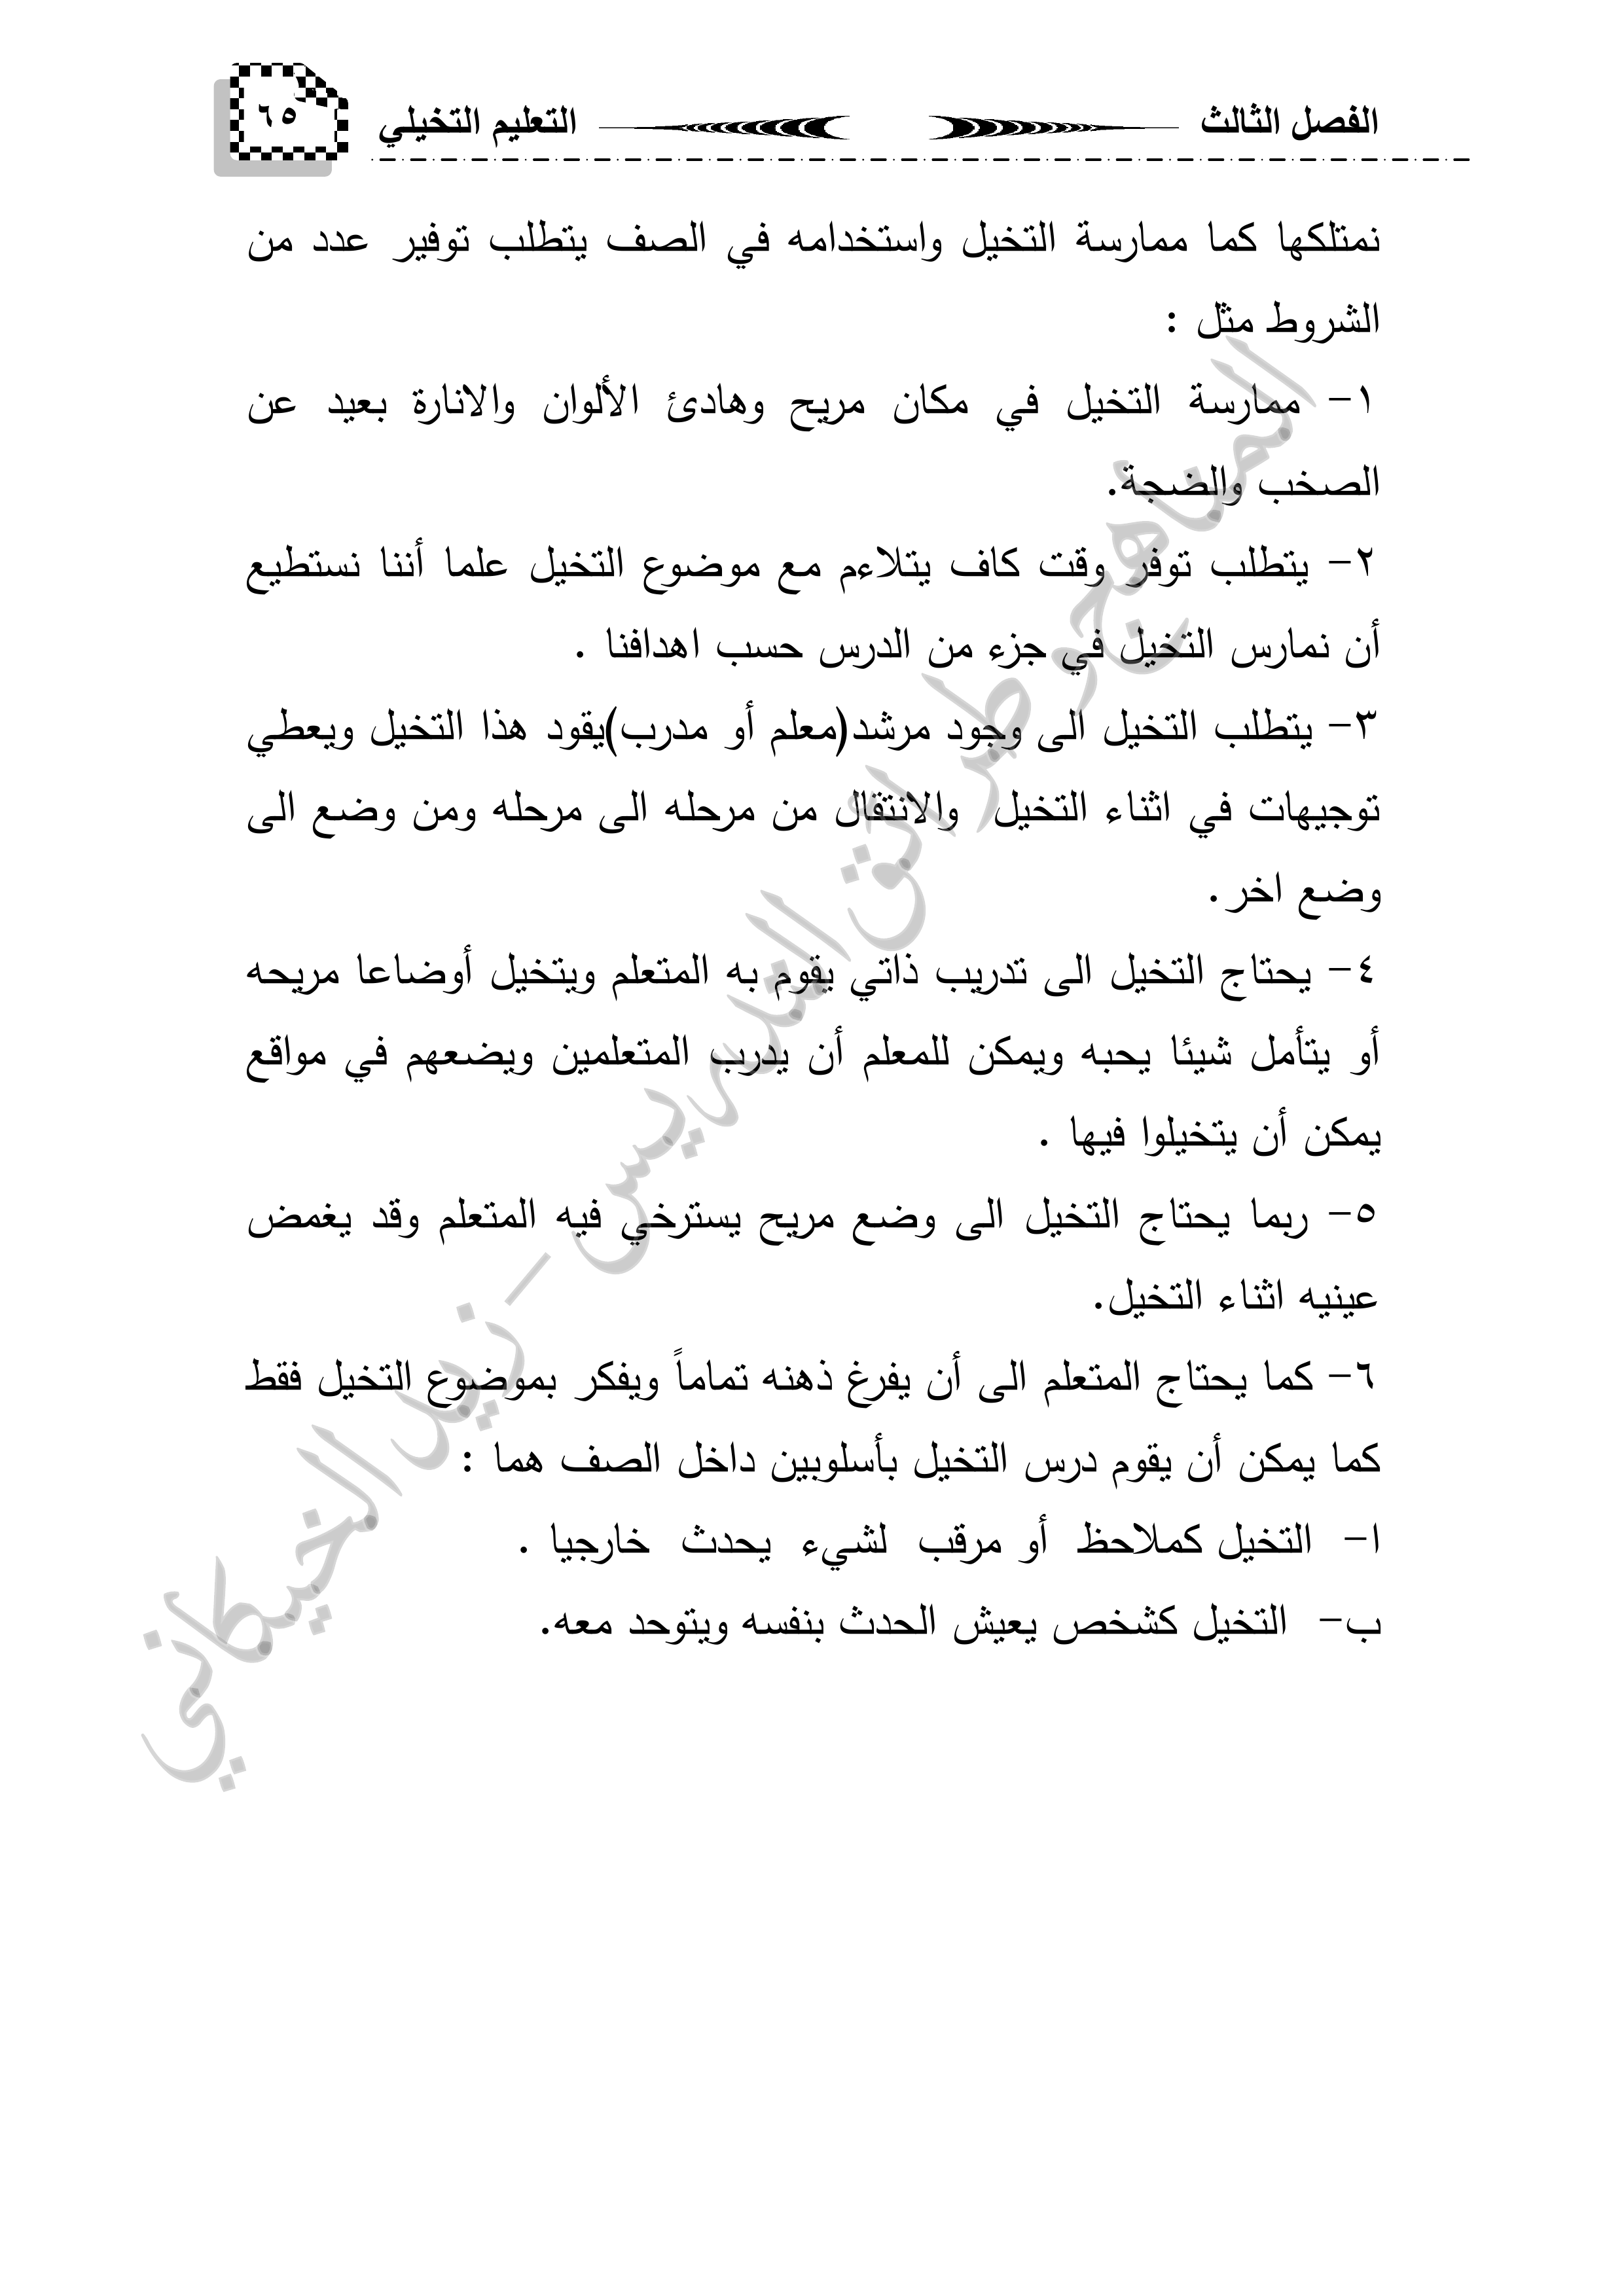 الفصل الثالث
التعليم التخيلي
٦٥
نمتلكها كما ممارسة التخيل واستخدامه في الصف يتطلب توفير عدد من
الشروط مثل :
١- ممارسة التخيل في مكان مريح وهادئ الألوان والانارة بعيد عن
الصخب والضجة.
٢- يتطلب توفر وقت كاف يتلاءم مع موضوع التخيل علما أننا نستطيع
أن نمارس التخيل في جزء من الدرس حسب اهدافنا .
٣- يتطلب التخيل الى وجود مرشد(معلم أو مدرب)يقود هذا التخيل ويعطي
توجيهات في اثناء التخيل والانتقال من مرحله الى مرحله ومن وضع الى
وضع اخر.
٤- يحتاج التخيل الى تدريب ذاتي يقوم به المتعلم ويتخيل أوضاعا مريحه
أو يتأمل شيئا يحبه ويمكن للمعلم أن يدرب المتعلمين ويضعهم في مواقع
يمكن أن يتخيلوا فيها .
٥- ربما يحتاج التخيل الى وضع مريح يسترخي فيه المتعلم وقد يغمض
عينيه اثناء التخيل.
٦- كما يحتاج المتعلم الى أن يفرغ ذهنه تماماً ويفكر بموضوع التخيل فقط
كما يمكن أن يقوم درس التخيل بأسلوبين داخل الصف هما :
ا- التخيل كملاحظ أو مرقب لشيء يحدث خارجيا .
ب- التخيل كشخص يعيش الحدث بنفسه ويتوحد معه.
المناهج وطرائق التدريس - زيد الخيكاني